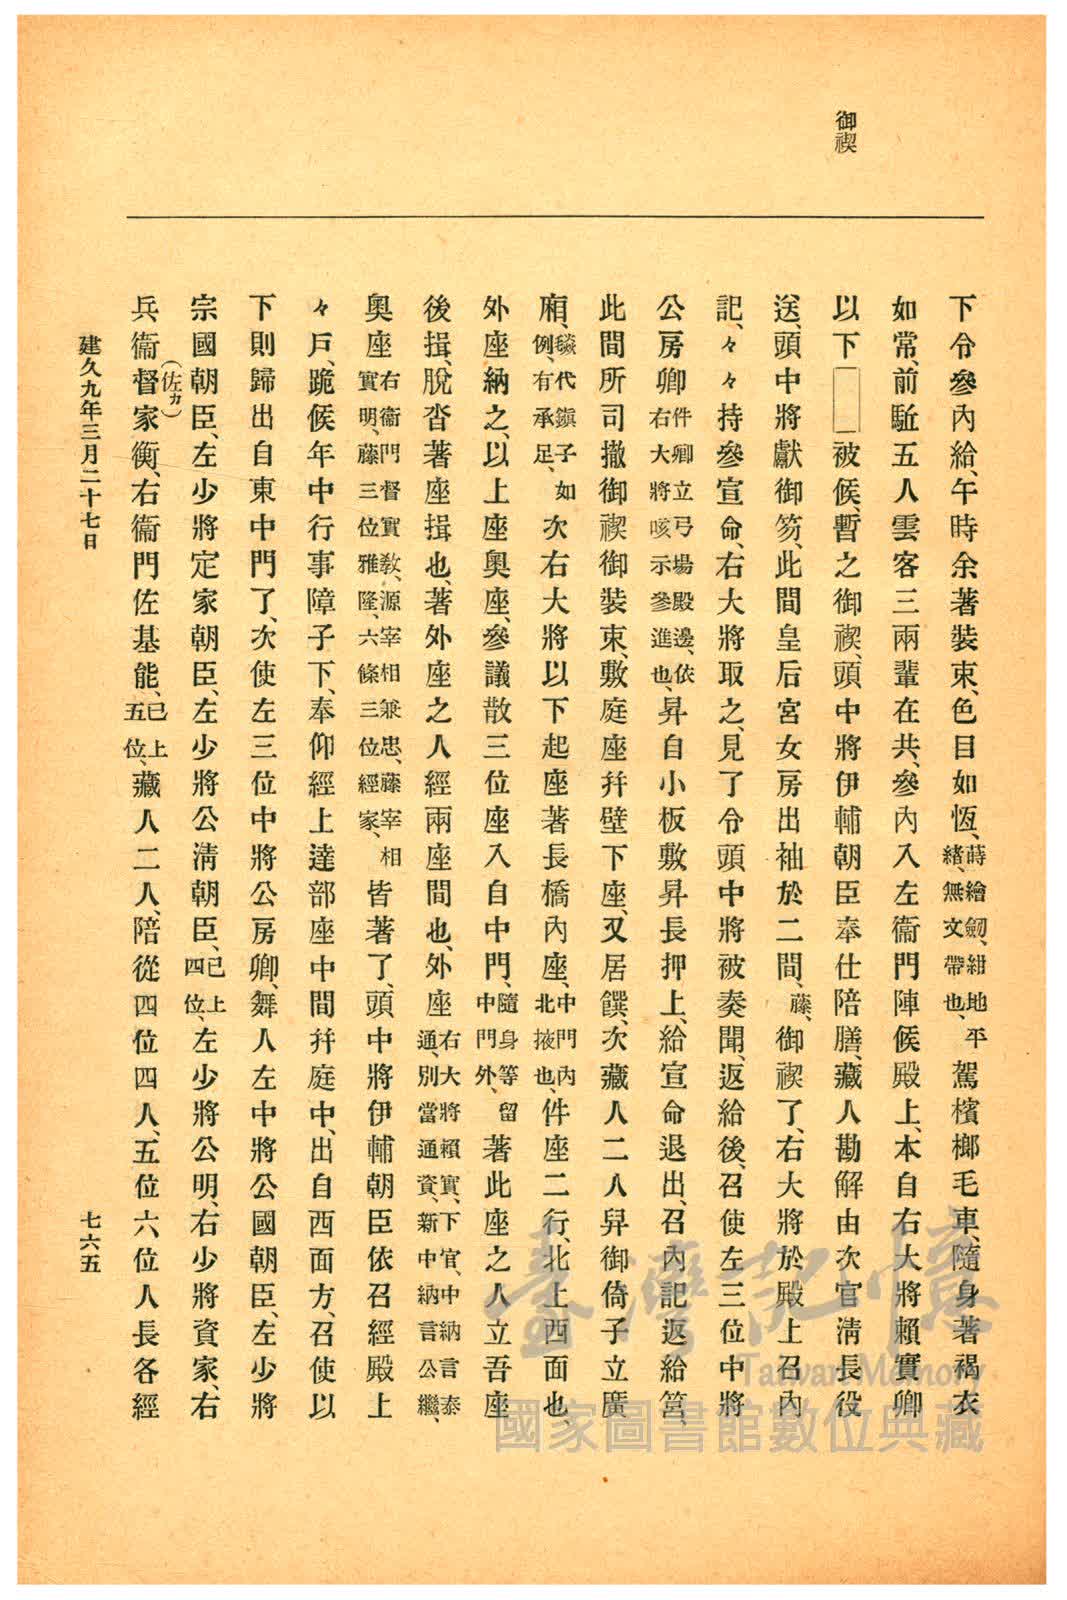 御禊
下令參內給、午時余著裝束、色目如恆、蒔繪劒、紺地平緒、無文帶也、駕檳榔毛車、隨身著褐衣
如常、前駈五人雲客三兩輩在共、參內入左衞門陣候殿上、本自右大將賴實卿
以下□□被候、暫之御禊、頭中將伊輔朝臣奉仕陪膳、藏人勘解由次官淸長役
送、頭中將獻御笏、此間皇后宮女房出袖於二間、藤、御禊了、右大將於殿上召內
記、々々持參宣命、右大將取之、見了令頭中將被奏聞、返給後、召使左三位中將
公房卿件卿立弓場殿邊、依右大將咳示參進也、昇自小板敷昇長押上、給宣命退出、召內記返給筥、
此間所司撤御禊御裝束、敷庭座幷壁下座、又居饌、次藏人二人舁御倚子立廣
廂、毯代鎭子如例、有承足、次右大將以下起座著長橋內座、中門內北掖也、件座二行、北上西面也、
外座納之、以上座奧座、參議散三位座入自中門、隨身等留中門外、著此座之人立吾座
後揖、脫沓著座揖也、著外座之人經兩座間也、外座右大將賴實、下官、中納言泰通、別當通資、新中納言公繼、
奧座右衞門督實敎、源宰相兼忠、藤宰相實明、藤三位雅隆、六條三位經家、皆著了、頭中將伊輔朝臣依召經殿上
々戶、跪候年中行事障子下、奉仰經上達部座中間幷庭中、出自西面方、召使以
下則歸出自東中門了、次使左三位中將公房卿、舞人左中將公國朝臣、左少將
宗國朝臣、左少將定家朝臣、左少將公淸朝臣、已上四位、左少將公明、右少將資家、右
兵衞督(佐カ)家衡、右衞門佐基能、已上五位、藏人二人、陪從四位四人、五位六位人長各經
建久九年三月二十七日
七六五
臺灣記憶
Taiwan Memory
國家圖書館數位典藏